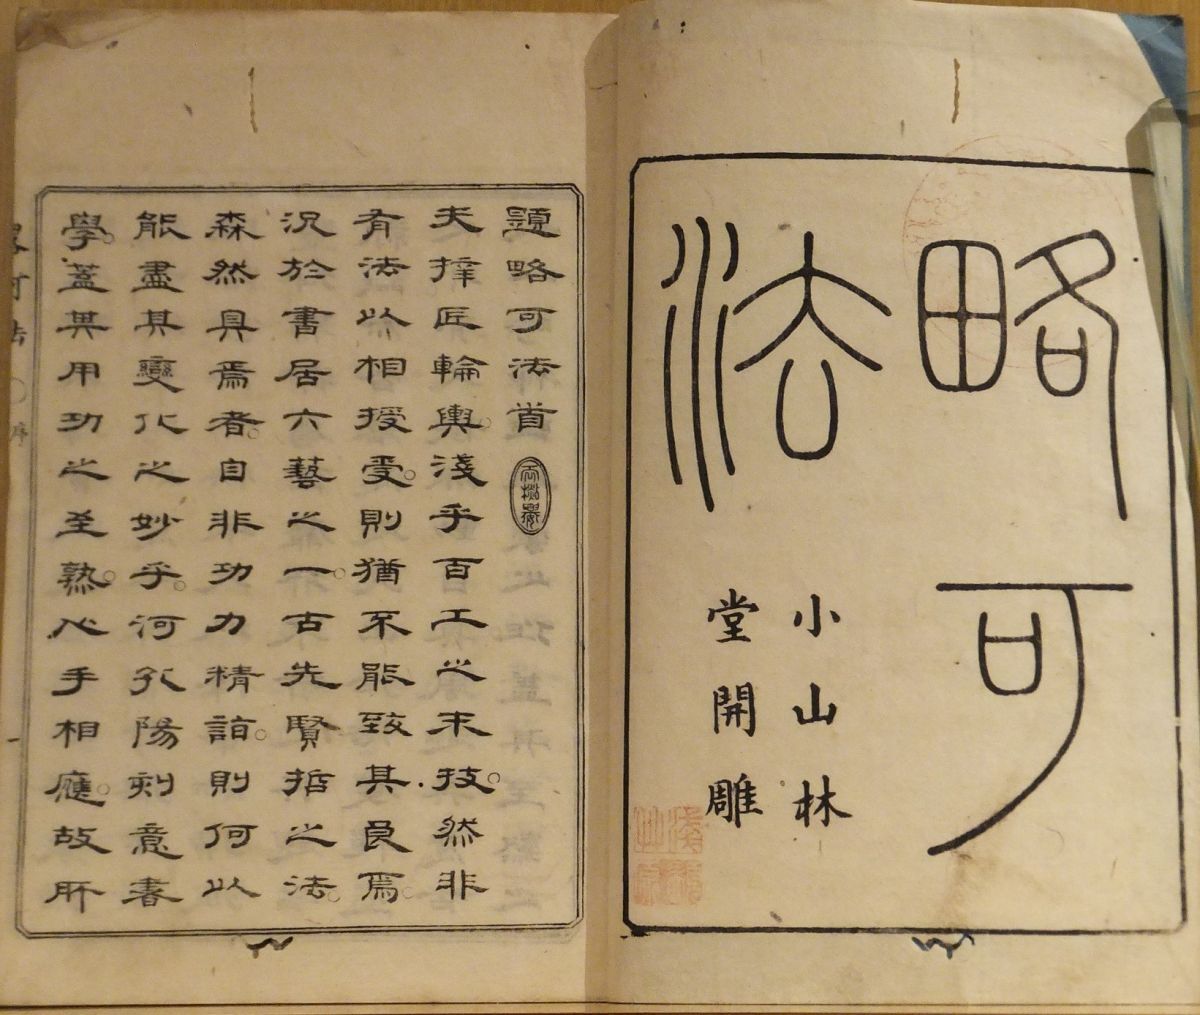 略可
法
小山林
堂開雕
題略可法首
夫梓匠輪輿。淺乎百工之末技。然非
有法以相授受。則猶不能致其良焉。
況於書居六藝之一。古先賢哲之法。
森然具焉者。自非功力精詣。則何以
能盡其變化之妙乎。河孔陽刻意書
學。蓋其用功之至熟。心手相應。故所